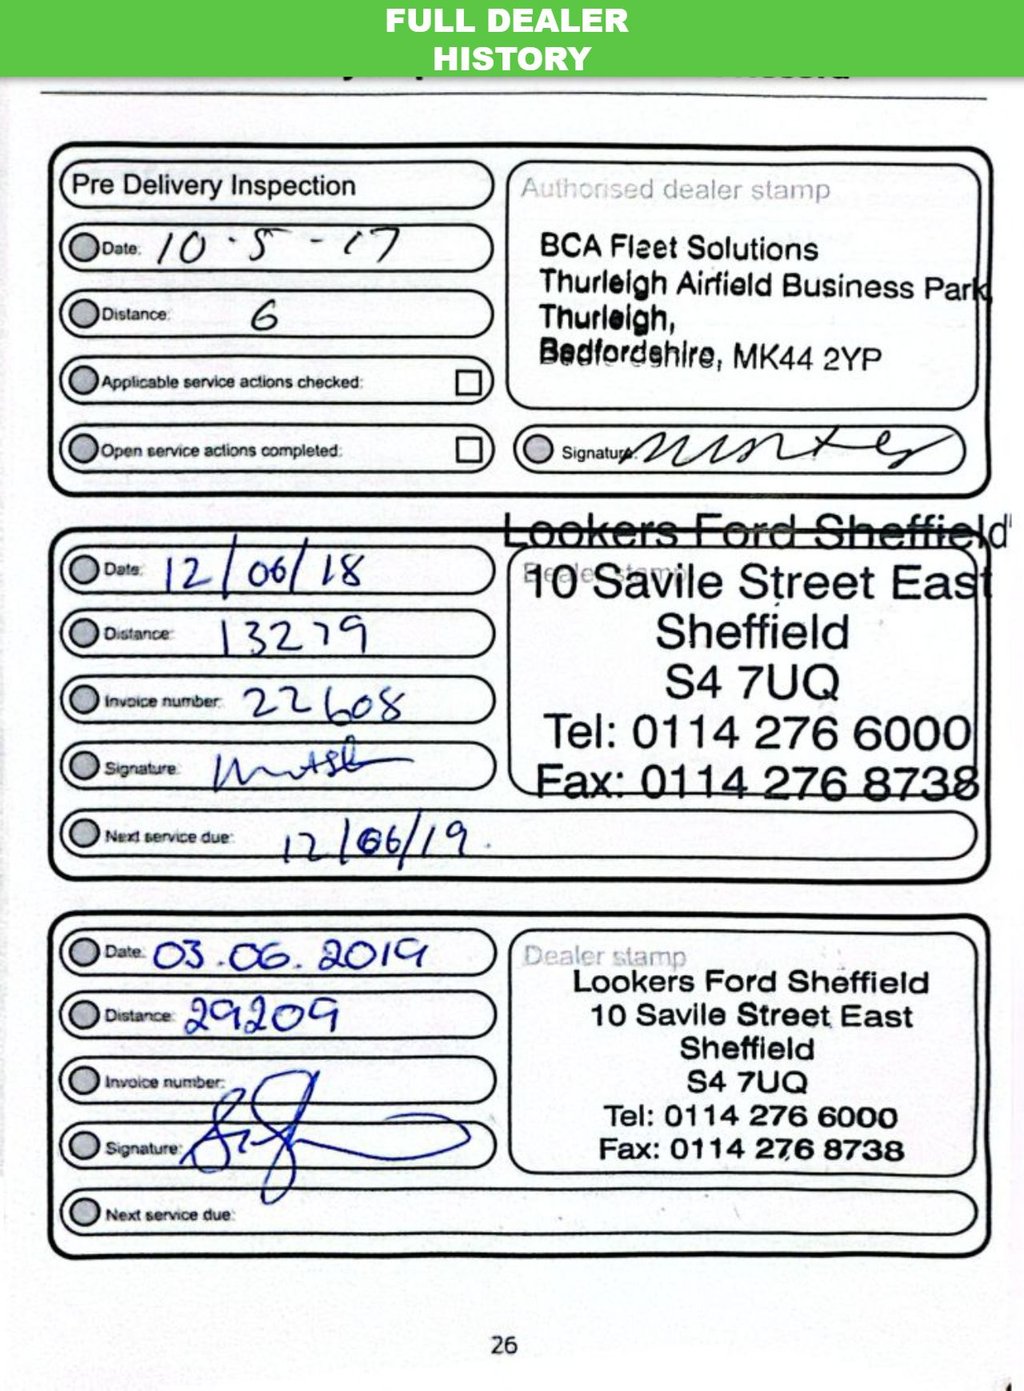 FULL DEALER
HISTORY
Pre Delivery Inspection
Date: 10·5-17
Distance: 6
Applicable service actions checked:
Open service actions completed:
Authorised dealer stamp
BCA Fleet Solutions
Thurleigh Airfield Business Park
Thurleigh,
Bedfordshire, MK44 2YP
Signature:
Date: 12/06/18
Distance: 13279
Invoice number: 22608
Signature:
Next service due: 12/06/19.
Lookers Ford Sheffield
Dealer stamp
10 Savile Street East
Sheffield
S4 7UQ
Tel: 0114 276 6000
Fax: 0114 276 8738
Date: 03.06.2019
Distance: 29209
Invoice number:
Signature:
Next service due:
Dealer stamp
Lookers Ford Sheffield
10 Savile Street East
Sheffield
S4 7UQ
Tel: 0114 276 6000
Fax: 0114 276 8738
26